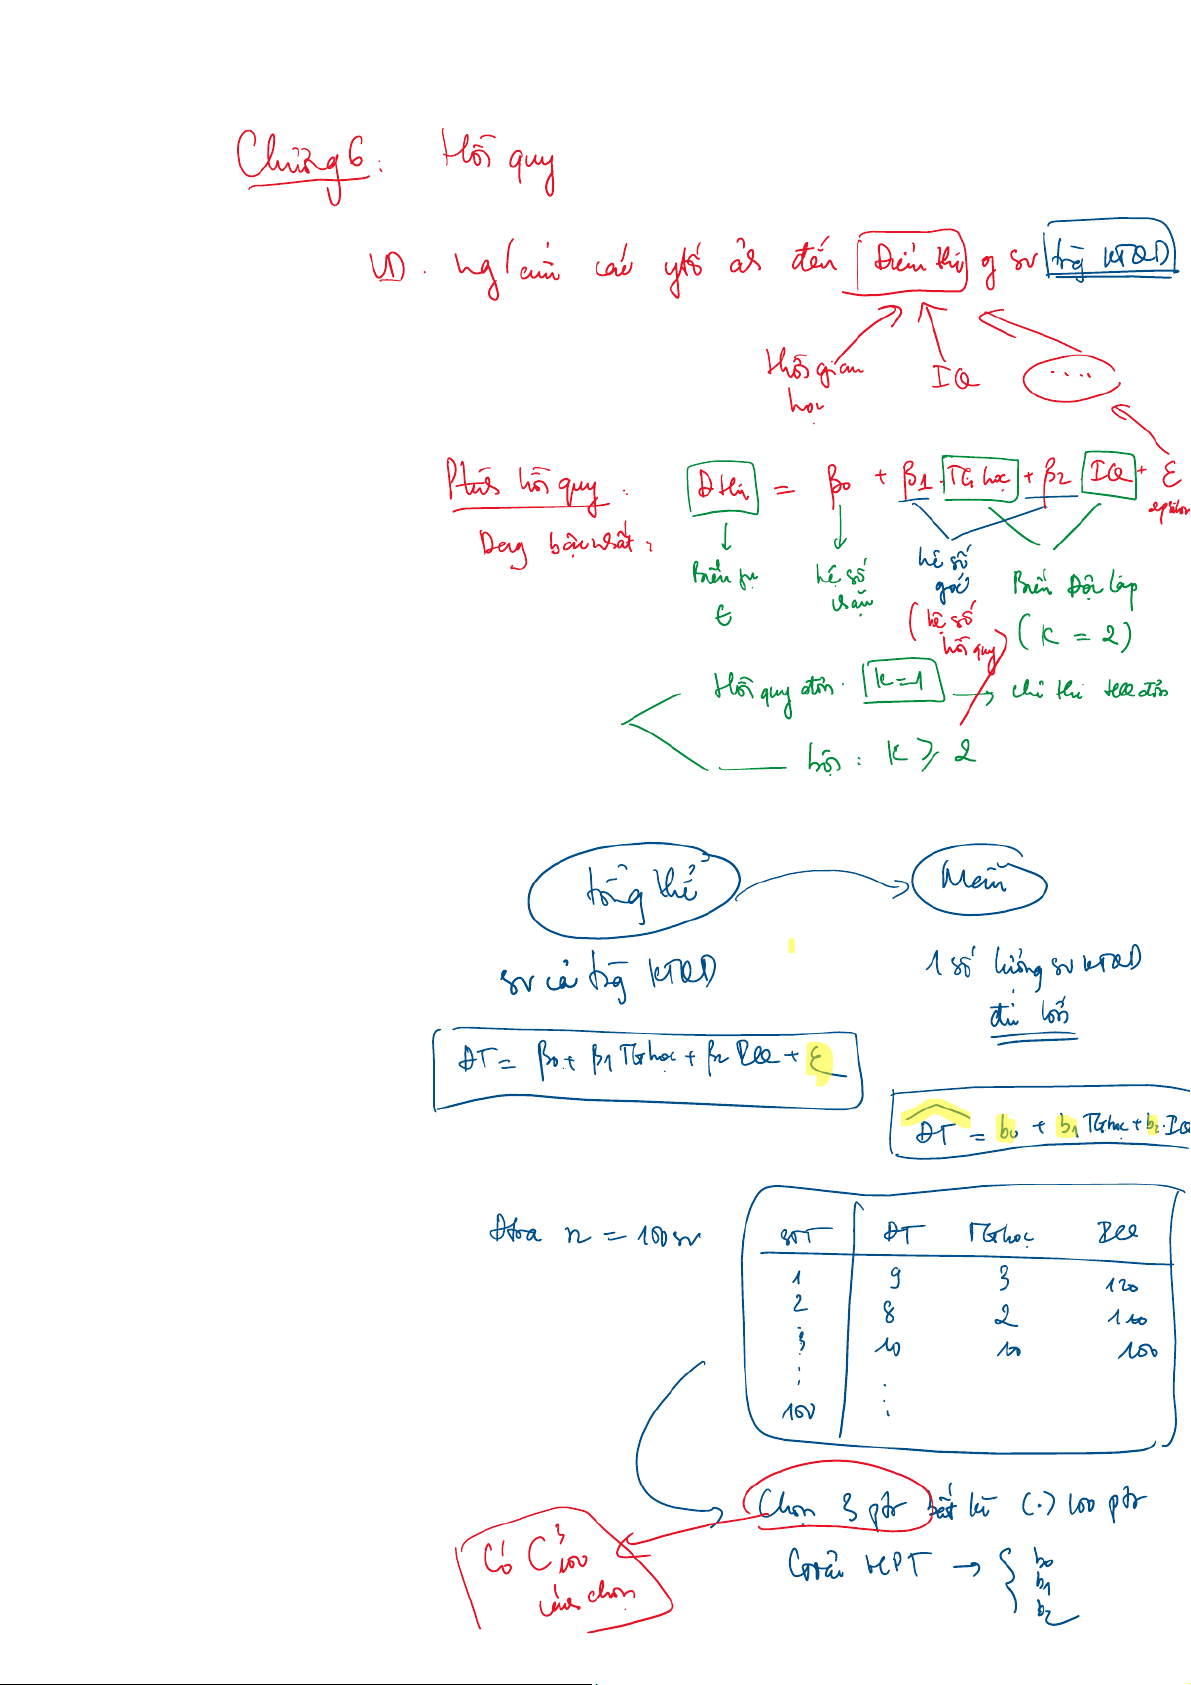 Chương 6: Hồi quy
VD. ng/cứu các ytố ảh đến Điểm thi of sv trg KTQD
thời gian học
IQ
....
Ptrình hồi quy:
Dạng bậc nhất:
Đ thi = β0 + β1.TG học + β2 IQ + ε
epsilon
Biến pụ t
hệ số chặn
hệ số góc
(hệ số hồi quy)
Biến Độc lập
(K = 2)
Hồi quy đơn: K=1 → chỉ thi HQ đơn
bội: K ≥ 2
tổng thể → Mẫu
sv cả trg KTQD
1 số lượng sv KTQD
đủ lớn
ĐT = β0 + β1 TG học + β2 IQ + ε
ĐT = b0 + b1 TG học + b2.IQ
Đtra n = 100 sv
STT ĐT TG học IQ
1 9 3 120
2 8 2 110
3 10 10 100
⋮ ⋮
100
Chọn 3 ptr bất kì (.) 100 ptr
Có C³100 cách chọn
Giải HPT → { b0
b1
b2